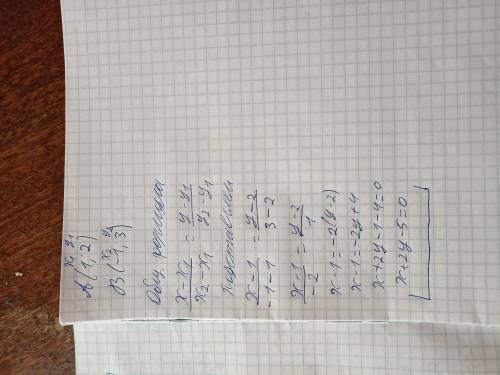 x₁ y₁
A(1, 2)
x₂ y₂
B(-1, 3)
Общ. формула
x-x₁/x₂-x₁ = y-y₁/y₂-y₁
Подставляем
x-1/-1-1 = y-2/3-2
x-1/-2 = y-2/1
x-1=-2(y-2)
x-1=-2y+4
x+2y-1-4=0
x+2y-5=0